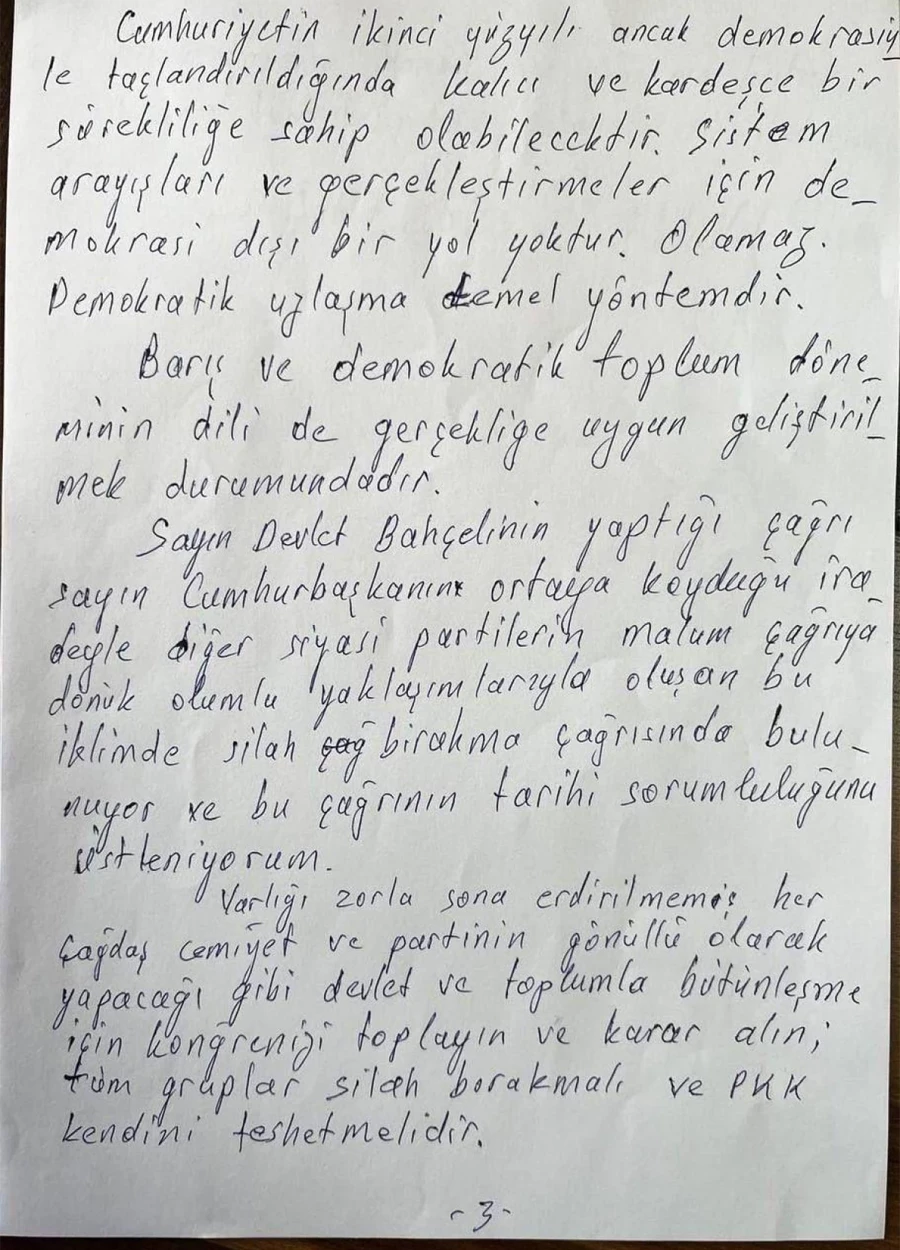 Cumhuriyetin ikinci yüzyılı ancak demokrasiy_
le taçlandırıldığında kalıcı ve kardeşçe bir
sürekliliğe sahip olabilecektir. Sistem
arayışları ve gerçekleştirmeler için de_
mokrasi dışı bir yol yoktur. Olamaz.
Demokratik uzlaşma temel yöntemdir.
Barış ve demokratik toplum döne_
minin dili de gerçekliğe uygun geliştiril_
mek durumundadır.
Sayın Devlet Bahçelinin yaptığı çağrı
sayın Cumhurbaşkanın ortaya koyduğu ira_
deyle diğer siyasi partilerin malum çağrıya
dönük olumlu yaklaşımlarıyla oluşan bu
iklimde silah çağ bırakma çağrısında bulu_
nuyor ve bu çağrının tarihi sorumluluğunu
üstleniyorum.
Varlığı zorla sona erdirilmemiş her
çağdaş cemiyet ve partinin gönüllü olarak
yapacağı gibi devlet ve toplumla bütünleşme
için kongrenizi toplayın ve karar alın;
tüm gruplar silah bırakmalı ve PKK
kendini feshetmelidir.
-3-